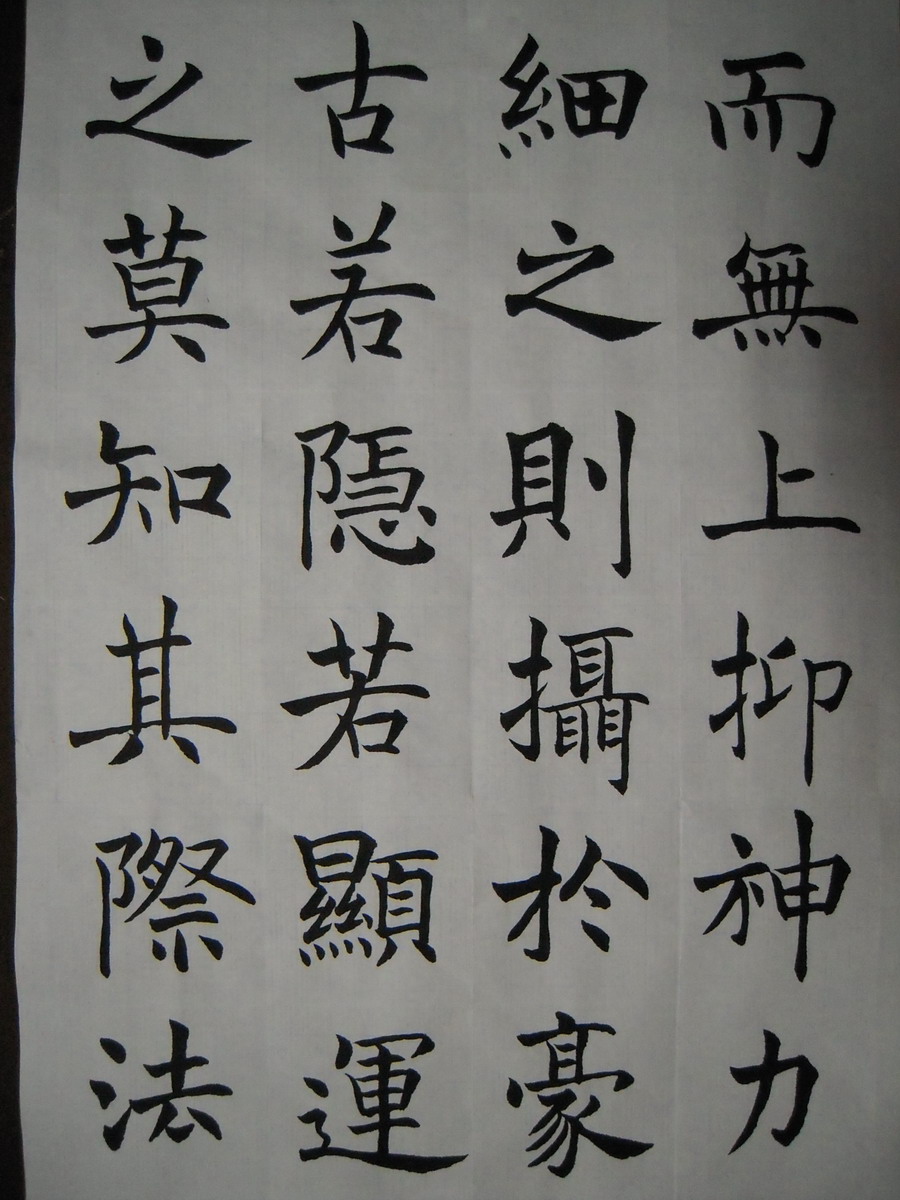 而無上抑神力
細之則攝於豪
古若隱若顯運
之莫知其際法